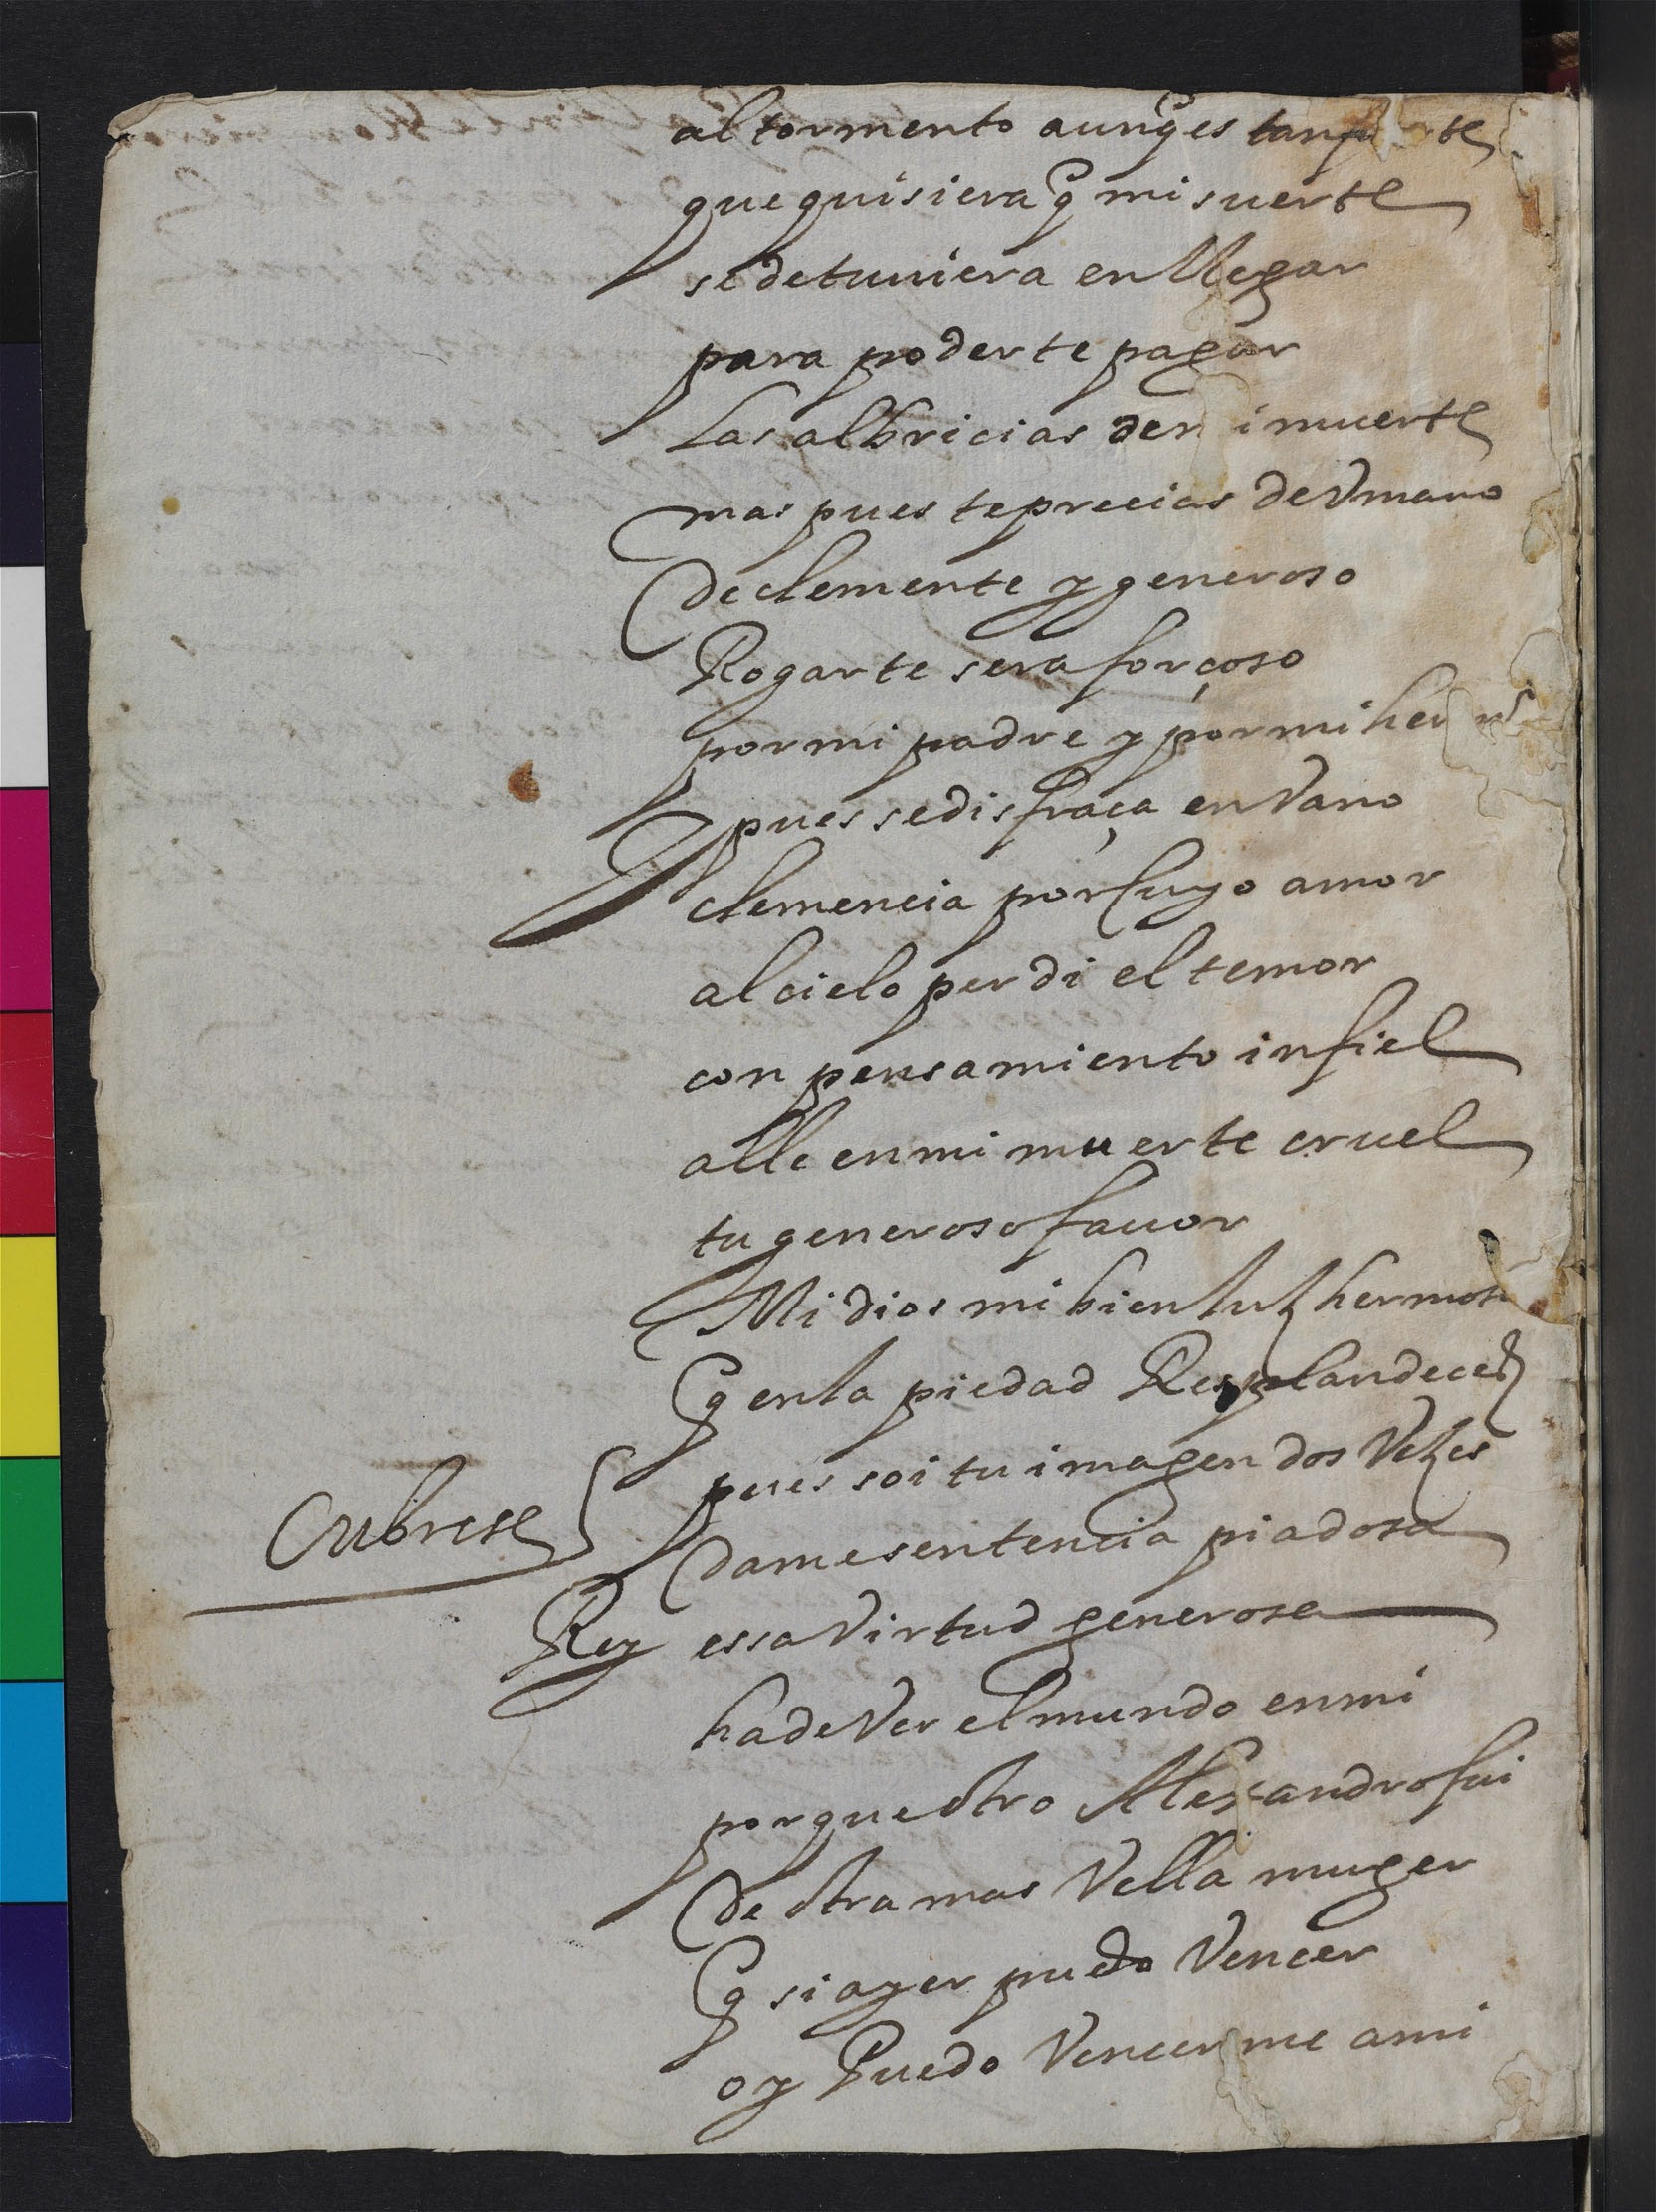 al tormento aunq̃ es tan fu rte
que quisiera q̃ mi suerte
se detuuiera en llegar
para poderte pagar
las albricias de m i muerte
mas pues te precias de Vmano
de clemente y generoso
Rogarte sera forçoso
por mi padre y por mi her no
pues se disfraça en Vano
clemencia por cuyo amor
al cielo perdi el temor
con pensamiento infiel
alle en mi muerte cruel
tu generoso fauor
Mi dios mi bien luz hermosa
q̃ en la piedad Resplandecez
pues soi tu imagen dos Vezes
Cubrese
dame sentencia piadosa
Rey essa Virtud generosa
ha de Ver el mundo en mi
porque otro Alexandro fui
de otra mas Vella muger
q̃ si ayer pudo Vencer
oy Puedo Vencerme a mi